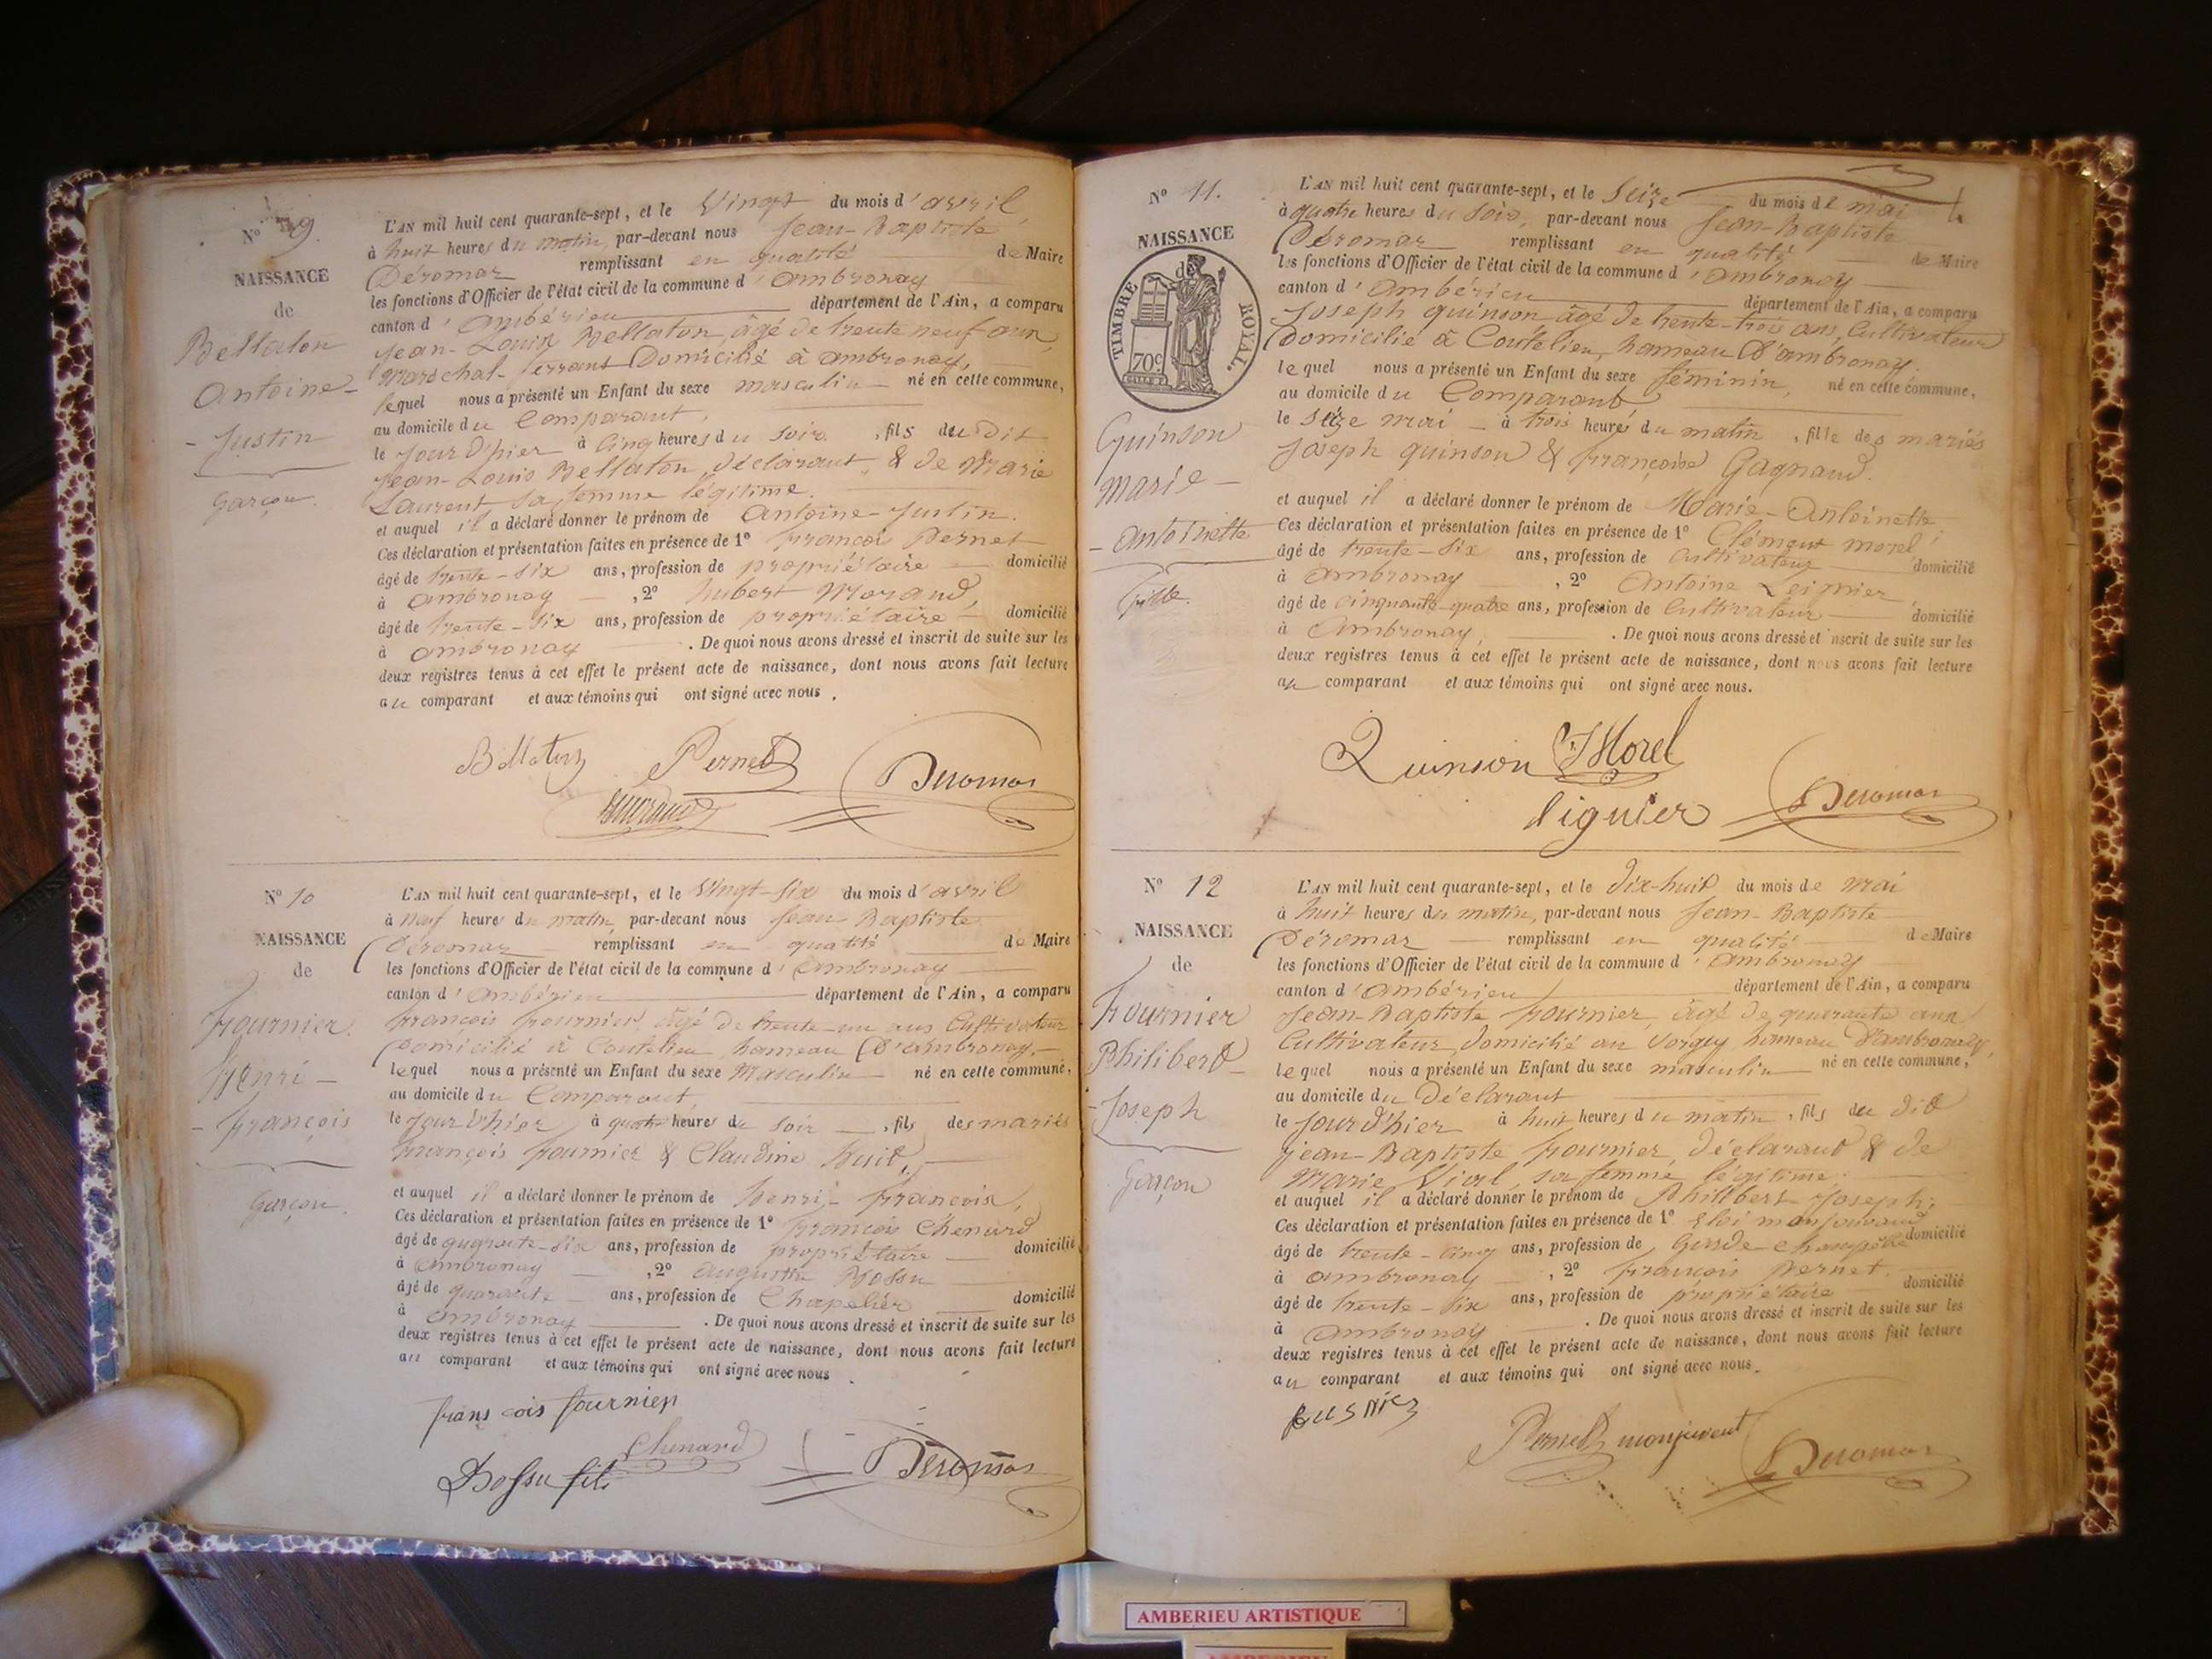 N° 9
NAISSANCE
de
Bellaton
Antoine-
-Justin
Garçon.
L'AN mil huit cent quarante-sept, et le Vingt du mois d'avril
à huit heures du matin, par-devant nous Jean-Baptiste
Déromas remplissant en qualité de Maire
les fonctions d'Officier de l'état civil de la commune d'ambronay
canton d'ambérieu département de l'Ain, a comparu
Jean-Louis Bellaton, âgé de trente neuf ans,
Maréchal-ferrant Domicilié à ambronay,
lequel nous a présenté un Enfant du sexe masculin né en cette commune,
au domicile du Comparant,
le jour d'hier à Cinq heures du soir, fils du dit
Jean-Louis Bellaton, déclarant, & de Marie
Laurent, sa femme légitime.
et auquel il a déclaré donner le prénom de Antoine-Justin.
Ces déclaration et présentation faites en présence de 1° françois Pernet
âgé de trente-six ans, profession de propriétaire domicilié
à ambronay, 2° hubert Morand,
âgé de trente-six ans, profession de propriétaire domicilié
à ambronay. De quoi nous avons dressé et inscrit de suite sur les
deux registres tenus à cet effet le présent acte de naissance, dont nous avons fait lecture
au comparant et aux témoins qui ont signé avec nous.
Bellaton Pernet Deromas
N° 10
NAISSANCE
de
fournier
henri-
-françois
Garçon.
L'AN mil huit cent quarante-sept, et le Vingt-six du mois d'avril
à neuf heures du matin, par-devant nous Jean Baptiste
Déromas remplissant en qualité de Maire
les fonctions d'Officier de l'état civil de la commune d'ambronay
canton d'ambérieu département de l'Ain, a comparu
françois fournier âgé de trente-un ans Cultivateur
Domicilié à Coutelieu hameau D'ambronay,
lequel nous a présenté un Enfant du sexe Masculin né en cette commune,
au domicile du Comparant,
le jour d'hier à quatre heures du soir, fils des mariés
françois fournier & Claudine
et auquel il a déclaré donner le prénom de henri-françois,
Ces déclaration et présentation faites en présence de 1° françois Chenard
âgé de quarante-six ans, profession de propriétaire domicilié
à ambronay, 2° augustin Bossu
âgé de quarante ans, profession de Chapelier domicilié
à ambronay. De quoi nous avons dressé et inscrit de suite sur les
deux registres tenus à cet effet le présent acte de naissance, dont nous avons fait lecture
au comparant et aux témoins qui ont signé avec nous.
frans cois fournier
Chenard
Bossu fils Deromas
N° 11.
NAISSANCE
de
TIMBRE ROYAL.
70c
Quinson
Marie-
-antoinette
fille.
L'AN mil huit cent quarante-sept, et le Seize du mois de mai
à quatre heures du soir, par-devant nous Jean-Baptiste
Déromas remplissant en qualité de Maire
les fonctions d'Officier de l'état civil de la commune d'ambronay
canton d'ambérieu département de l'Ain, a comparu
Joseph quinson âgé de trente-trois ans, Cultivateur
Domicilié à Coutelieu, hameau D'ambronay,
lequel nous a présenté un Enfant du sexe féminin, né en cette commune,
au domicile du Comparant
le Seize mai à trois heures du matin, fille des mariés
Joseph quinson & françoise Gagnaud.
et auquel il a déclaré donner le prénom de Marie-Antoinette.
Ces déclaration et présentation faites en présence de 1° Clément morel
âgé de trente-six ans, profession de Cultivateur domicilié
à ambronay, 2° Antoine Leignier
âgé de cinquante-quatre ans, profession de Cultivateur domicilié
à Ambronay. De quoi nous avons dressé et inscrit de suite sur les
deux registres tenus à cet effet le présent acte de naissance, dont nous avons fait lecture
au comparant et aux témoins qui ont signé avec nous.
Quinson Morel
liguier Deromas
N° 12
NAISSANCE
de
fournier
Philibert-
-Joseph
Garçon
L'AN mil huit cent quarante-sept, et le dix-huit du mois de mai
à huit heures du matin, par-devant nous Jean-Baptiste
Déromas remplissant en qualité de Maire
les fonctions d'Officier de l'état civil de la commune d'ambronay
canton d'ambérieu département de l'Ain, a comparu
Jean-Baptiste fournier, âgé de quarante ans
Cultivateur, domicilié au Vorgey, hameau D'ambronay,
lequel nous a présenté un Enfant du sexe masculin né en cette commune,
au domicile du Déclarant
le jour d'hier à huit heures du matin, fils du dit
jean-Baptiste fournier, déclarant & de
Marie Vial, sa femme légitime.
et auquel il a déclaré donner le prénom de Philibert Joseph,
Ces déclaration et présentation faites en présence de 1° Eloi monjouvent
âgé de trente-cinq ans, profession de Garde-Champêtre domicilié
à ambronay, 2° françois Pernet
âgé de trente-six ans, profession de propriétaire domicilié
à ambronay. De quoi nous avons dressé et inscrit de suite sur les
deux registres tenus à cet effet le présent acte de naissance, dont nous avons fait lecture
au comparant et aux témoins qui ont signé avec nous.
Pernet monjuvent Deromas
AMBERIEU ARTISTIQUE